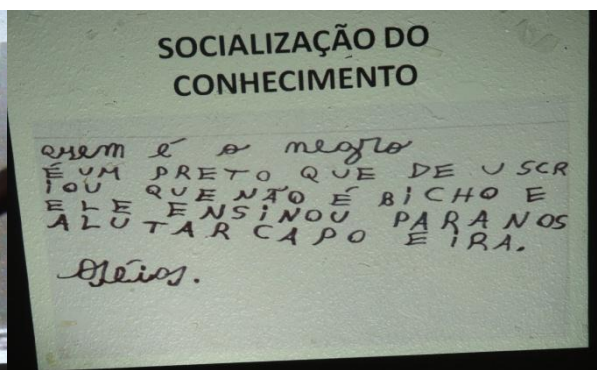 SOCIALIZAÇÃO DO
CONHECIMENTO
quem é o negro
É UM PRETO QUE DE U SCR
IOU QUE NÃO É BICHO E
ELE ENSINOU PARA NOS
ALUTAR CAPO EIRA.
Oséios.